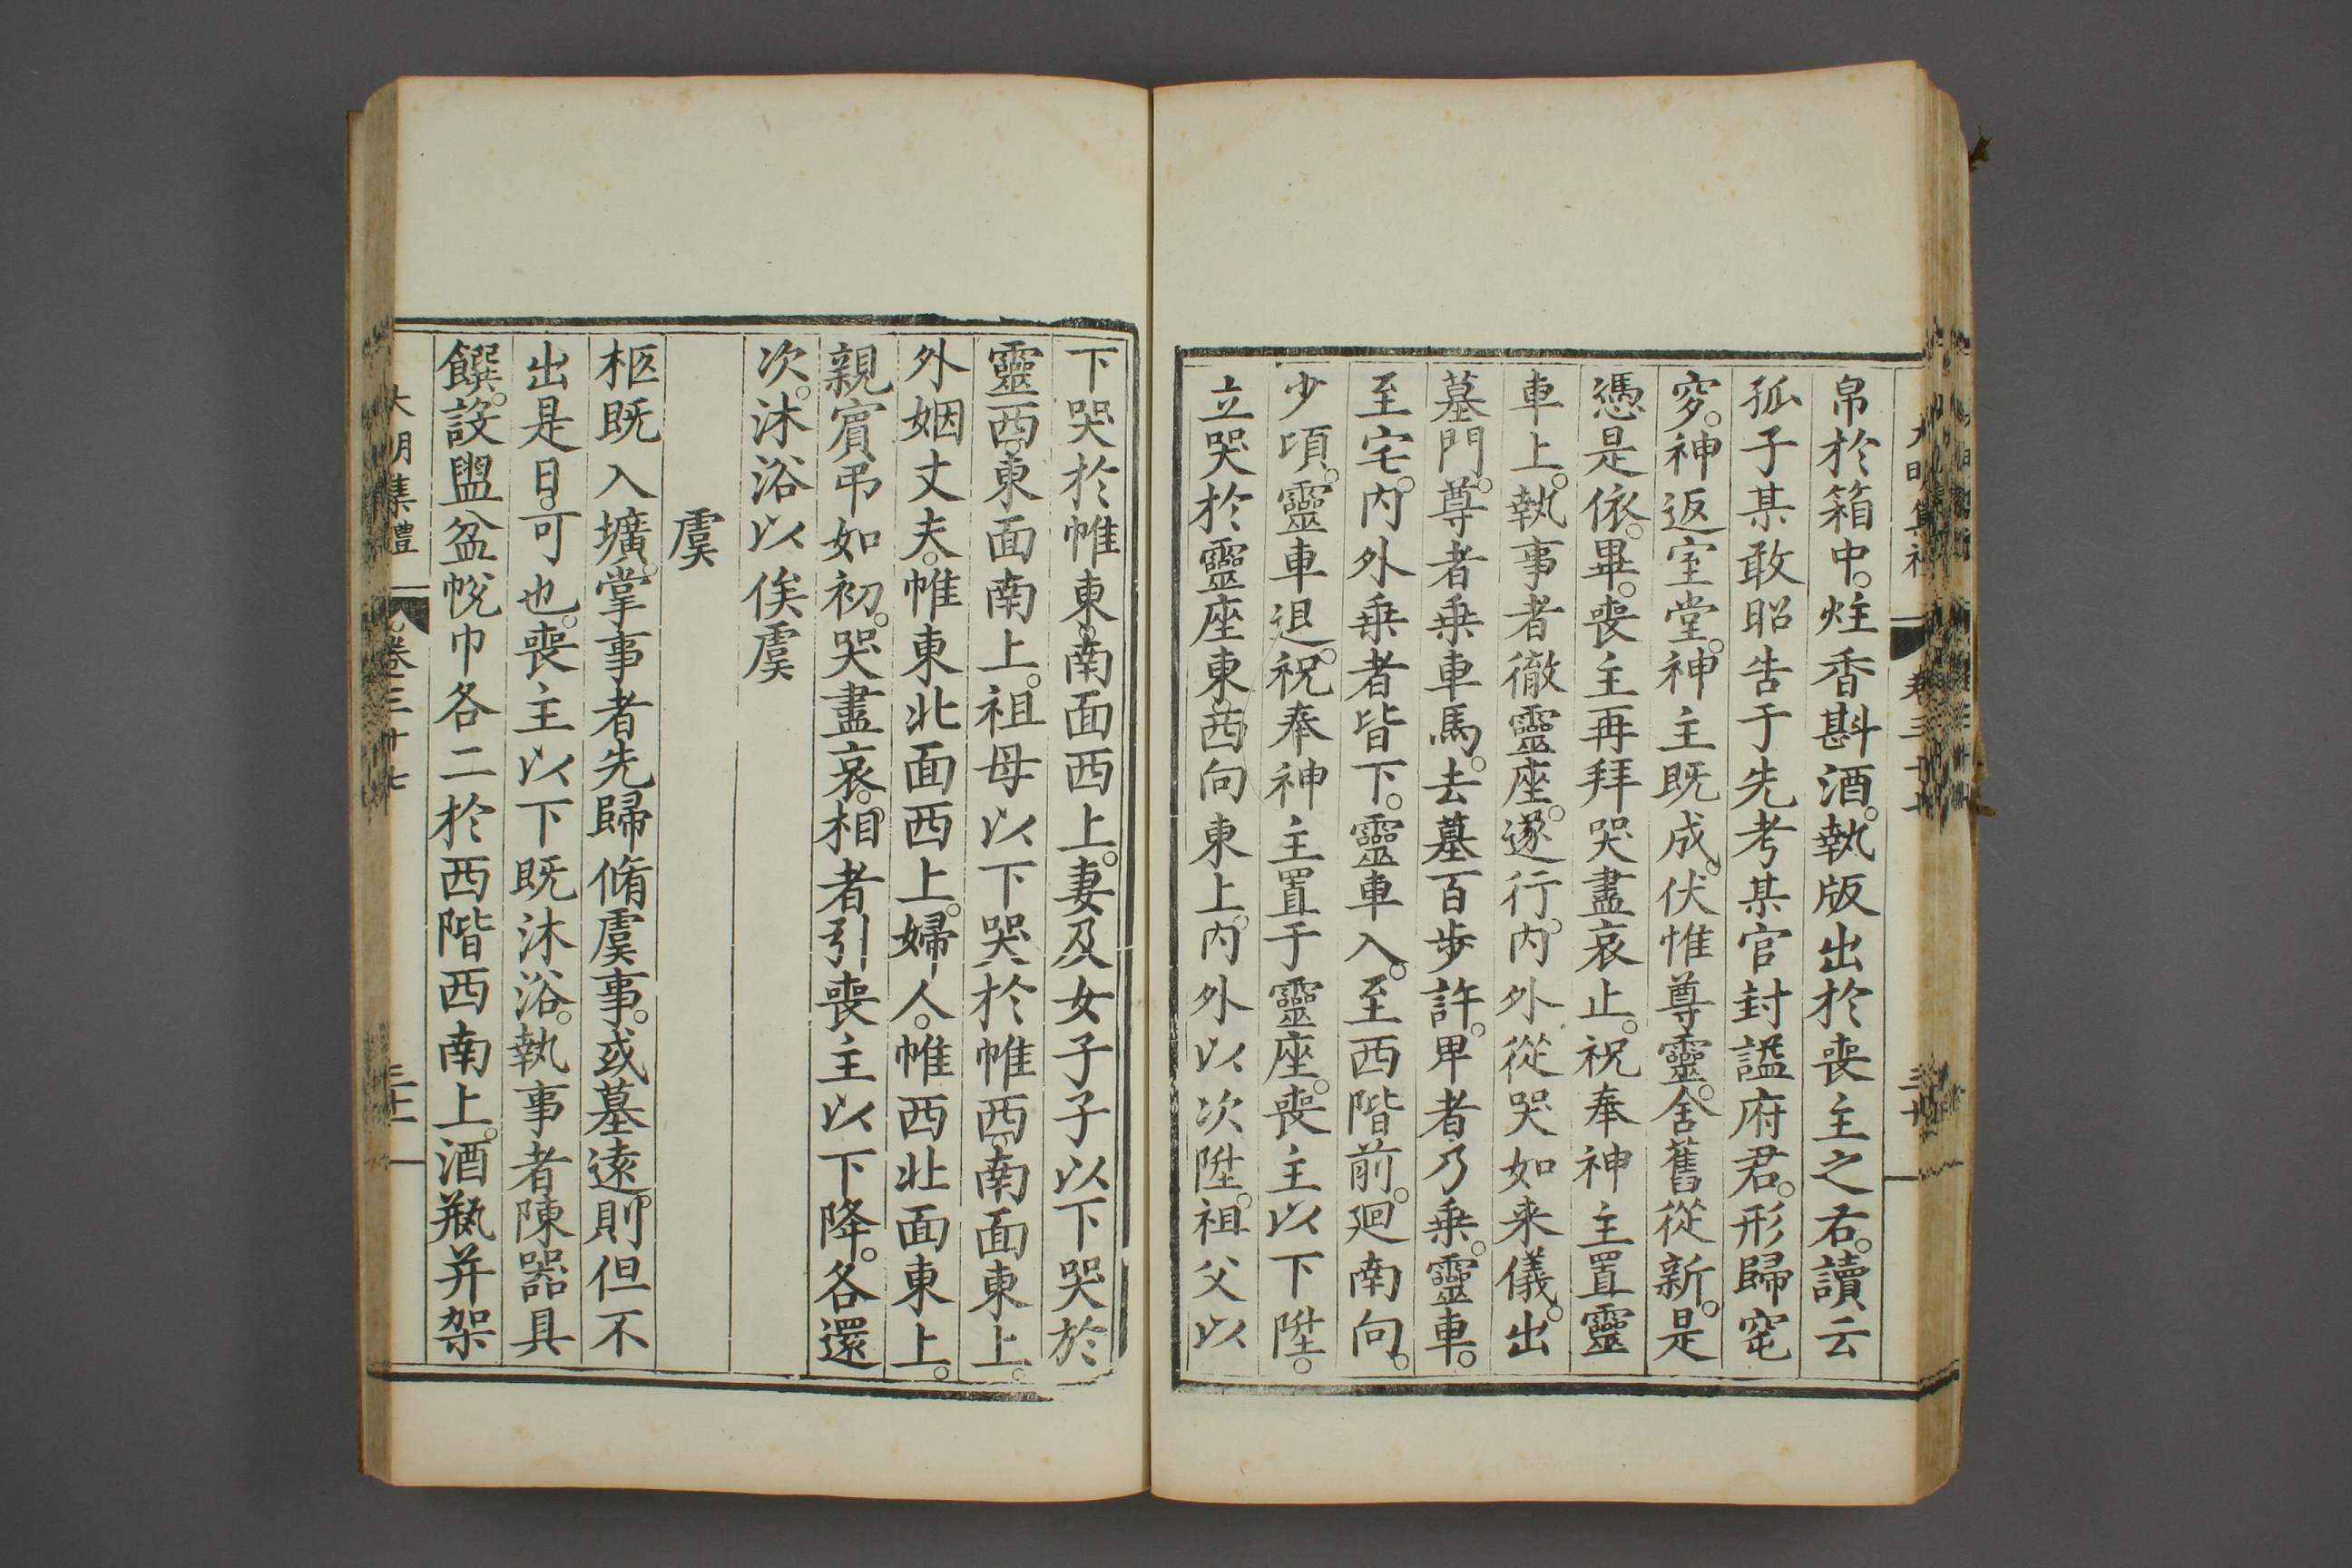 帛於箱中。炷香斟酒。執版出於喪主之右。讀云
孤子某敢昭告于先考某官封謚府君。形歸窀
穸。神返室堂。神主既成。伏惟尊靈。舍舊從新。是
憑是依。畢。喪主再拜哭盡哀止。祝奉神主置靈
車上。執事者徹靈座。遂行。内外從哭如来儀。出
墓門。尊者乗車馬。去墓百步許。卑者乃乗。靈車。
至宅。内外乗者皆下。靈車入。至西階前。廻南向。
少頃。靈車退。祝奉神主置于靈座。喪主以下陞。
立哭於靈座東。西向東上。内外以次陞。祖父以
下哭於帷東。南面西上。妻及女子子以下哭於
靈西。東面南上。祖母以下哭於帷西。南面東上。
外姻丈夫。帷東北面西上。婦人。帷西北面東上。
親賓弔如初。哭盡哀。相者引喪主以下降。各還
次。沐浴以俟虞
虞
柩既入壙。掌事者先歸脩虞事。或墓遠。則但不
出是日。可也。喪主以下既沐浴。執事者陳器具
饌。設盥盆帨巾各二於西階西南上。酒瓶并架
大明集禮 卷三十七 三十一